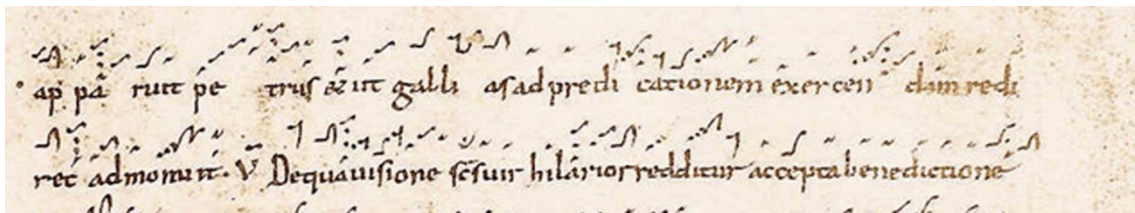 ap pa ruit pe trus & ut galli as ad predi cationem exercen dam redi
ret ad monuit. V De qua uisione scs uir hilarior redditur accepta benedictione